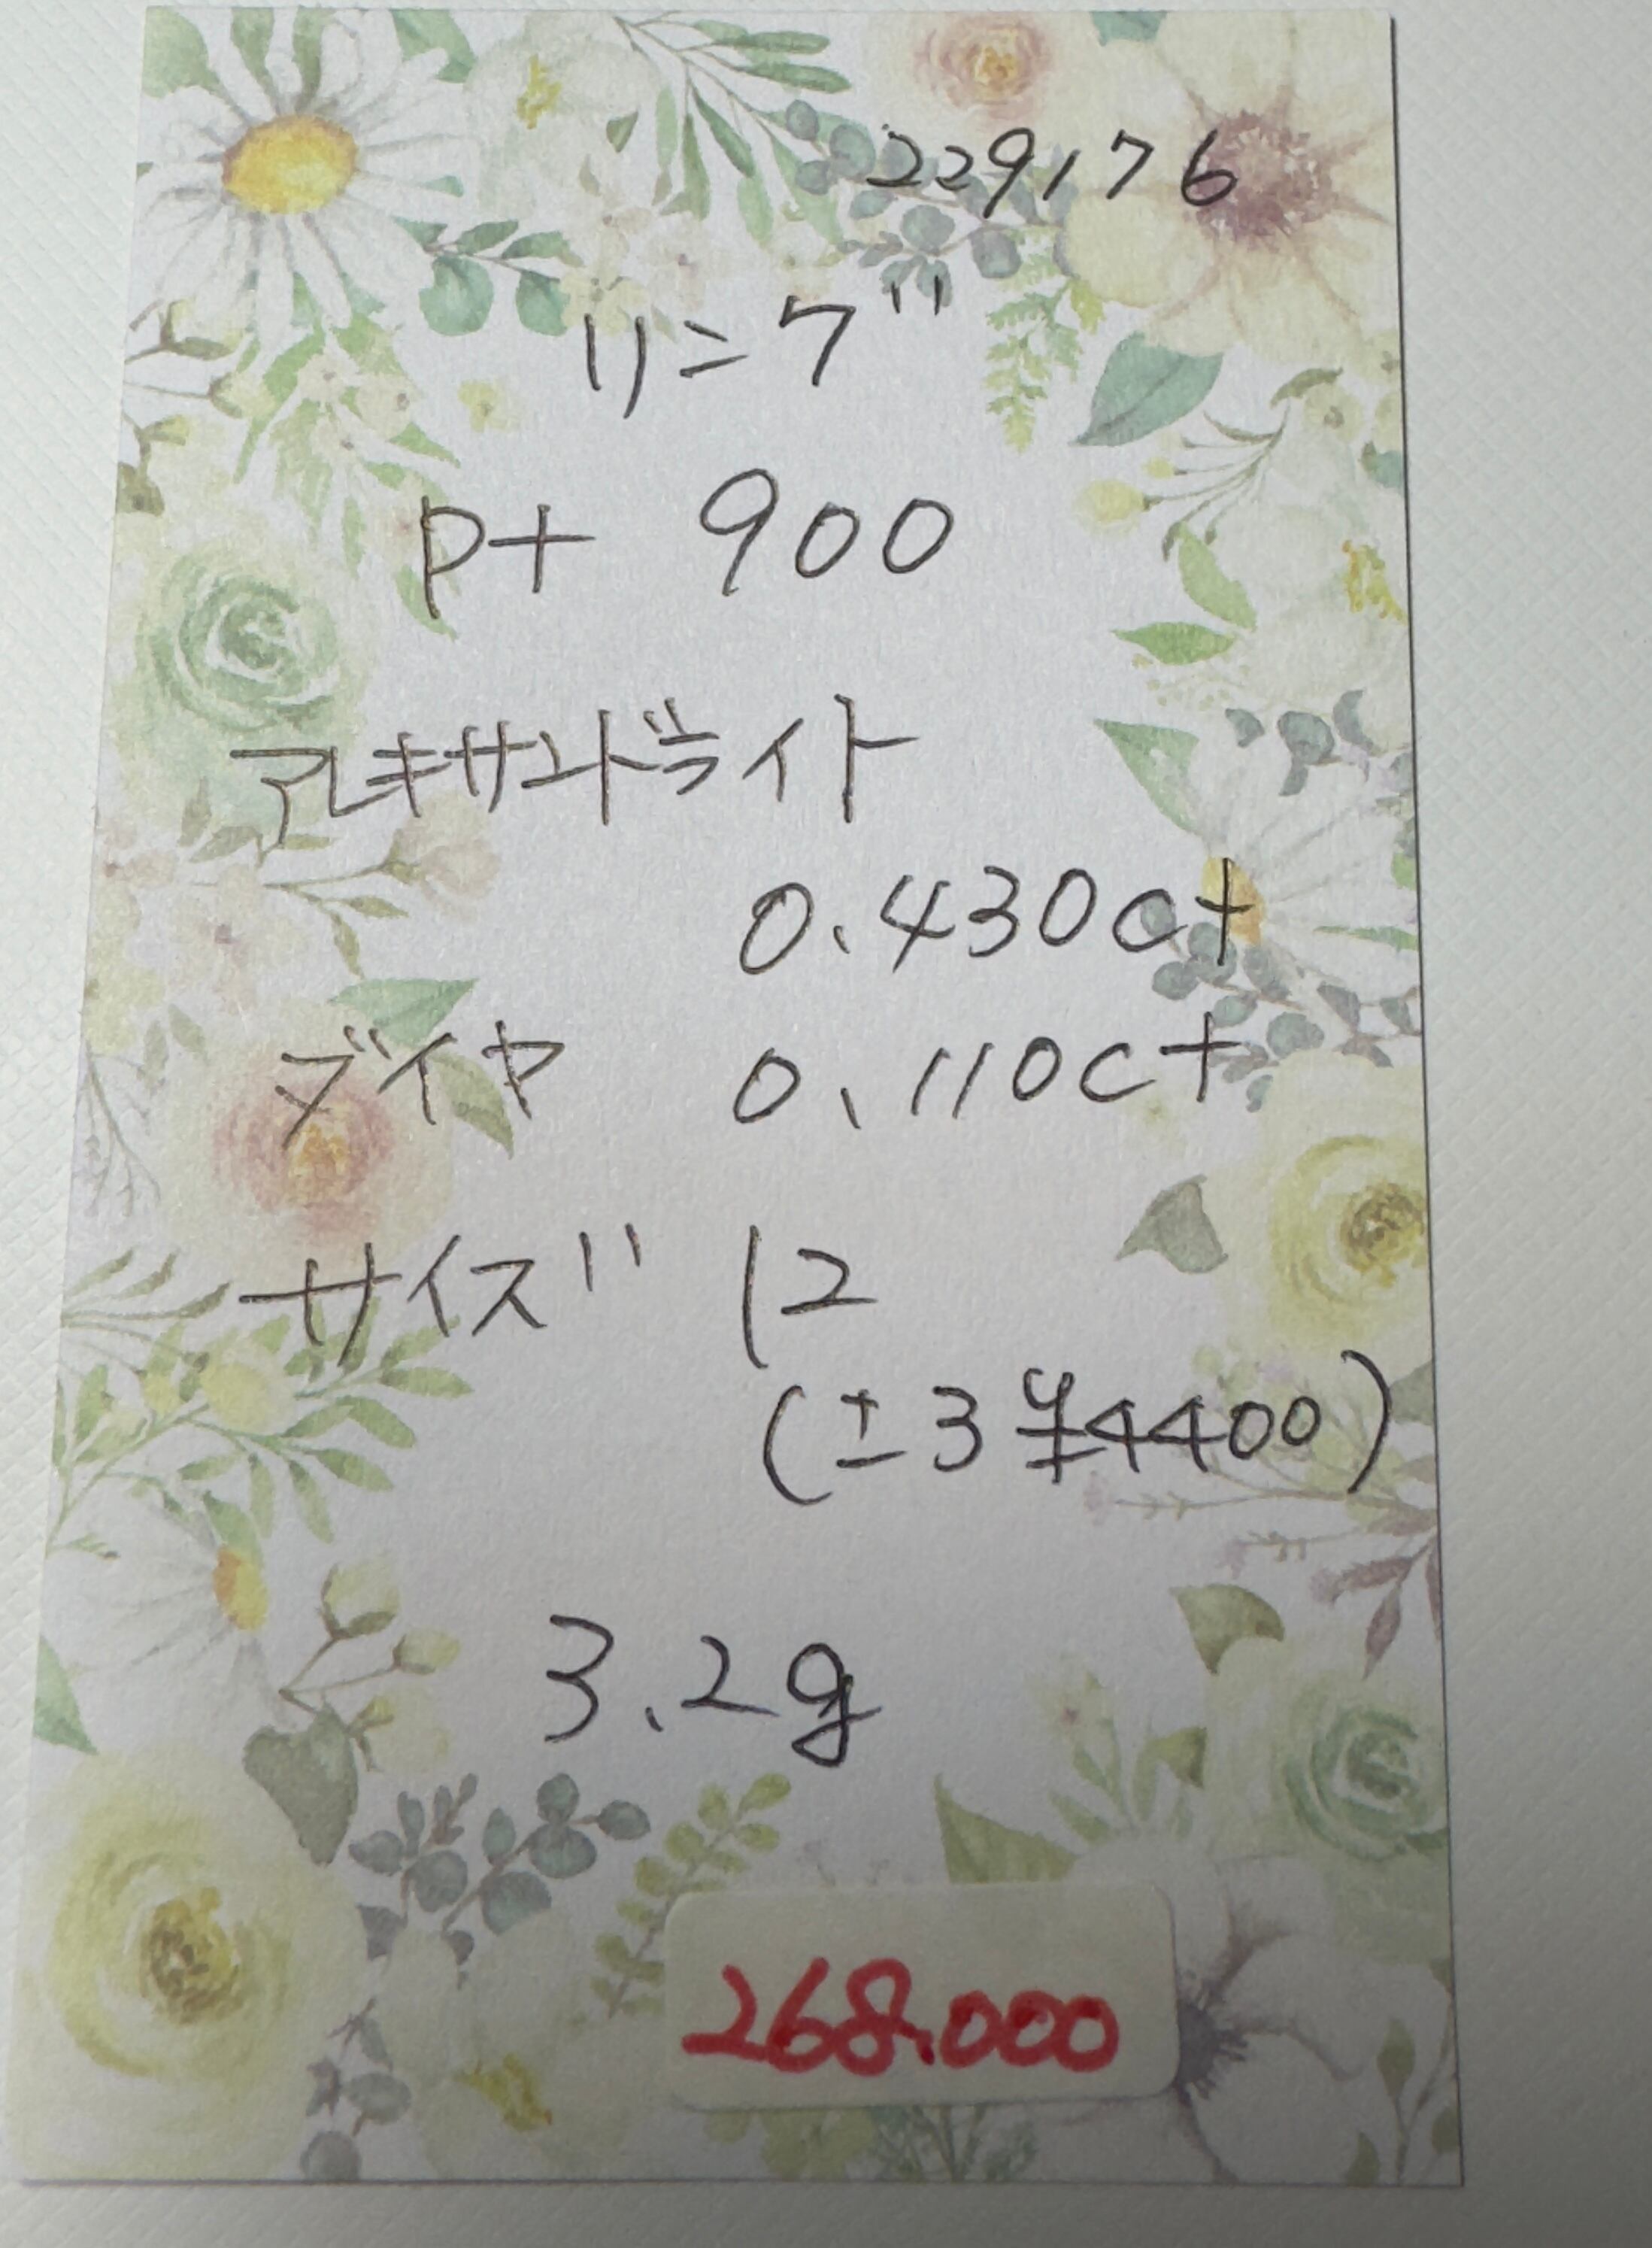 229176
リング
pt 900
アレキサンドライト
0.430ct
ダイヤ 0.110ct
サイズ 12
(±3 ¥4400)
3.2g
268.000